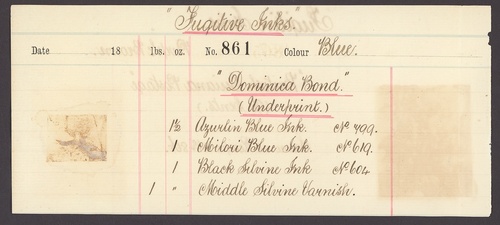 "Fugitive Inks"
Date 18 lbs. oz. No. 861 Colour Blue.
"Dominica Bond."
(Underprint.)
1½ Azurlin Blue Ink. No 499.
1 Milori Blue Ink. No 619.
1 Black Silvine Ink No 604
1 " Middle Silvine Varnish.